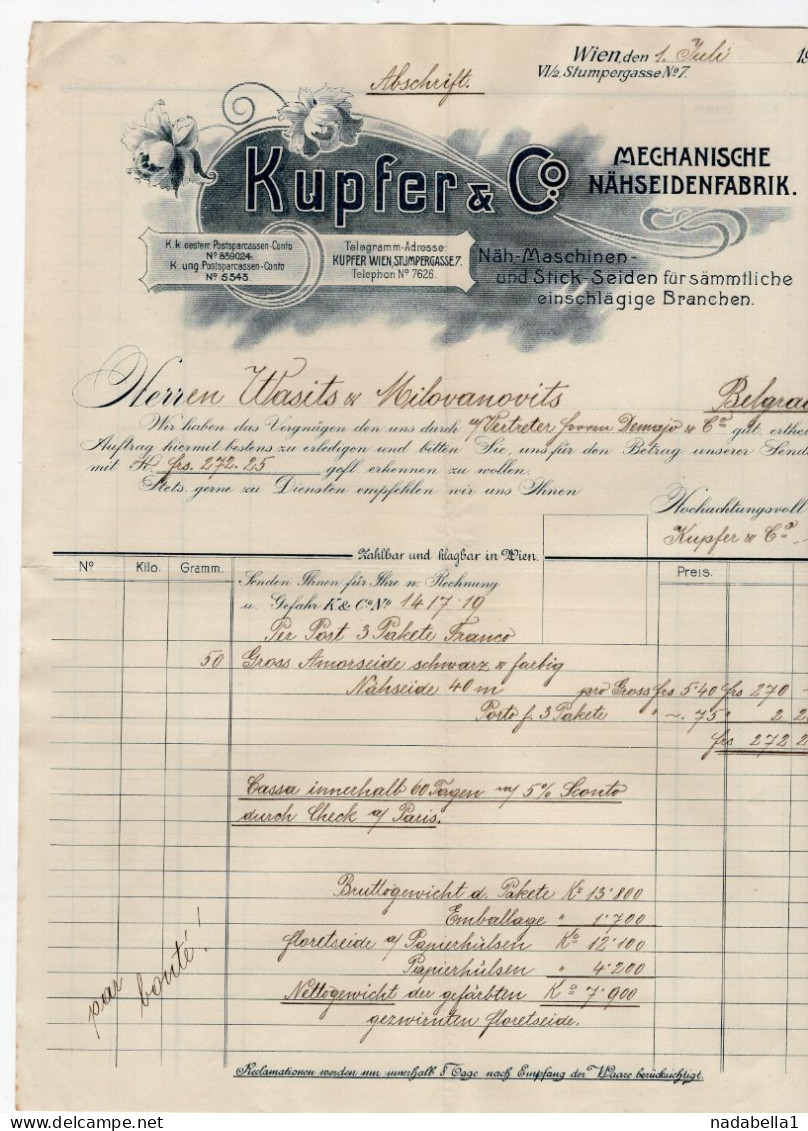 Wien, den 1. Juli 19
VI/2. Stumpergasse No 7.
Abschrift.
Kupfer & Co.
MECHANISCHE
NÄHSEIDENFABRIK.
K. k. oesterr. Postsparcassen-Conto
No 839024.
K. ung Postsparcassen-Conto
No 5343.
Telegramm-Adresse:
KUPFER WIEN, STUMPERGASSE 7.
Telephon No 7626.
Näh,- Maschinen-
und Stick-Seiden für sämmtliche
einschlägige Branchen.
Herren Wasits & Milovanovits Belgrad
Wir haben das Vergnügen den uns durch n/ Vertreter Herrn Demajo & Co güt. erthe
Auftrag hiermit bestens zu erledigen und bitten Sie, uns für den Betrag unserer Send
mit K. frs. 272.25 gefl. erkennen zu wollen.
Stets gerne zu Diensten empfehlen wir uns Ihnen
Hochachtungsvoll
Kupfer & Co
Zahlbar und klagbar in Wien.
No Kilo. Gramm. Preis.
Senden Ihnen für Ihre w. Rechnung
u. Gefahr K & Co No 1417.19
Per Post 3 Pakete Franco
50 Gross Amorseide schwarz & farbig
Nähseide 40 m pro Gross frs 5.40 frs 270 -
Porto f. 3 Pakete " -. 75 " 2 2
frs 272 2
Cassa innerhalb 60 Tagen m/ 5% Sconto
durch Check a/ Paris.
Bruttogewicht d. Pakete Ko 13.800
Emballage " 1.700
Floretseide a/ Papierhülsen Ko 12.100
Papierhülsen " 4.200
Nettogewicht der gefärbten Ko 7.900
gezwirnten Floretseide.
par bonté!
Reclamationen werden nur innerhalb 8 Tage nach Empfang der Waare berücksichtigt.
nadabella1